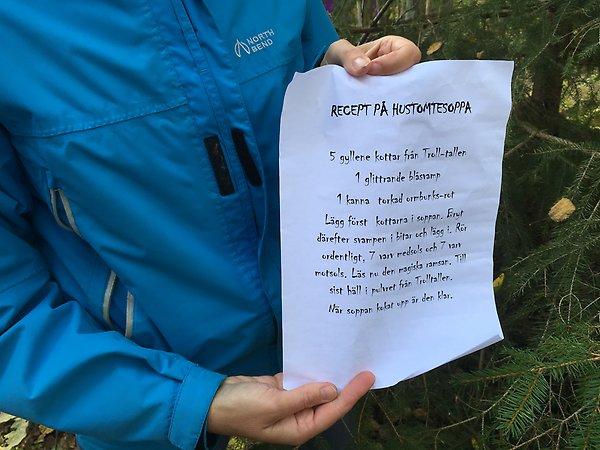 NORTH
BEND
RECEPT PÅ HUSTOMTESOPPA
5 gyllene kottar från Troll-tallen
1 glittrande blåsvamp
1 kanna torkad ormbunks-rot
Lägg först kottarna i soppan. Bryt
därefter svampen i bitar och lägg i. Rör
ordentligt, 7 varv medsols och 7 varv
motsols. Läs nu den magiska ramsan. Till
sist häll i pulvret från Trolltallen.
När soppan kokat upp är den klar.